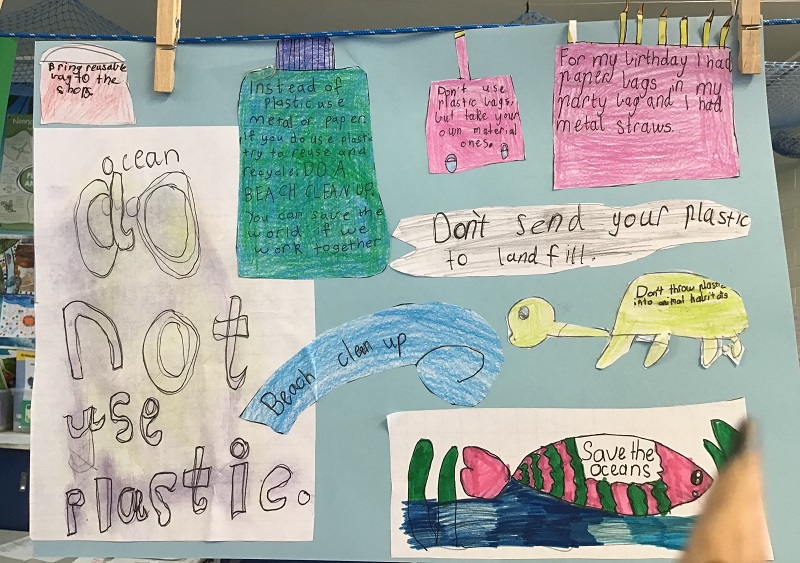 Bring reusable
bag to the
shops
Instead of
Plastic use
metal or paper.
if you do use plastic
try to reuse and
recycle. DO A
BEACH CLEAN UP.
You can save the
world if we
work together
Don't use
plastic bags,
but take your
own material
ones.
For my birthday I had
paper bags in my
party bag and I had
metal straws.
ocean
do
not
use
plastic.
Don't send your plastic
to landfill.
Don't throw plastic
into animal habitats
Beach clean up
Save the
oceans